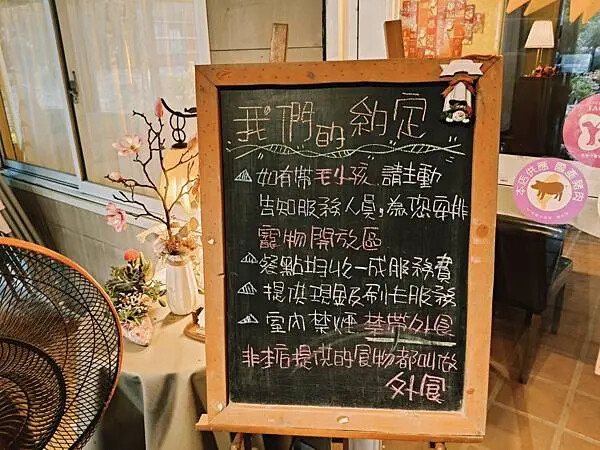 我們的約定
如有帶毛小孩 請主動
告知服務人員，為您安排
寵物開放區
餐點均收一成服務費
提供現金及刷卡服務
室內禁煙 禁帶外食
非本店提供的食物都叫做
外食
本店供應 國產豬肉